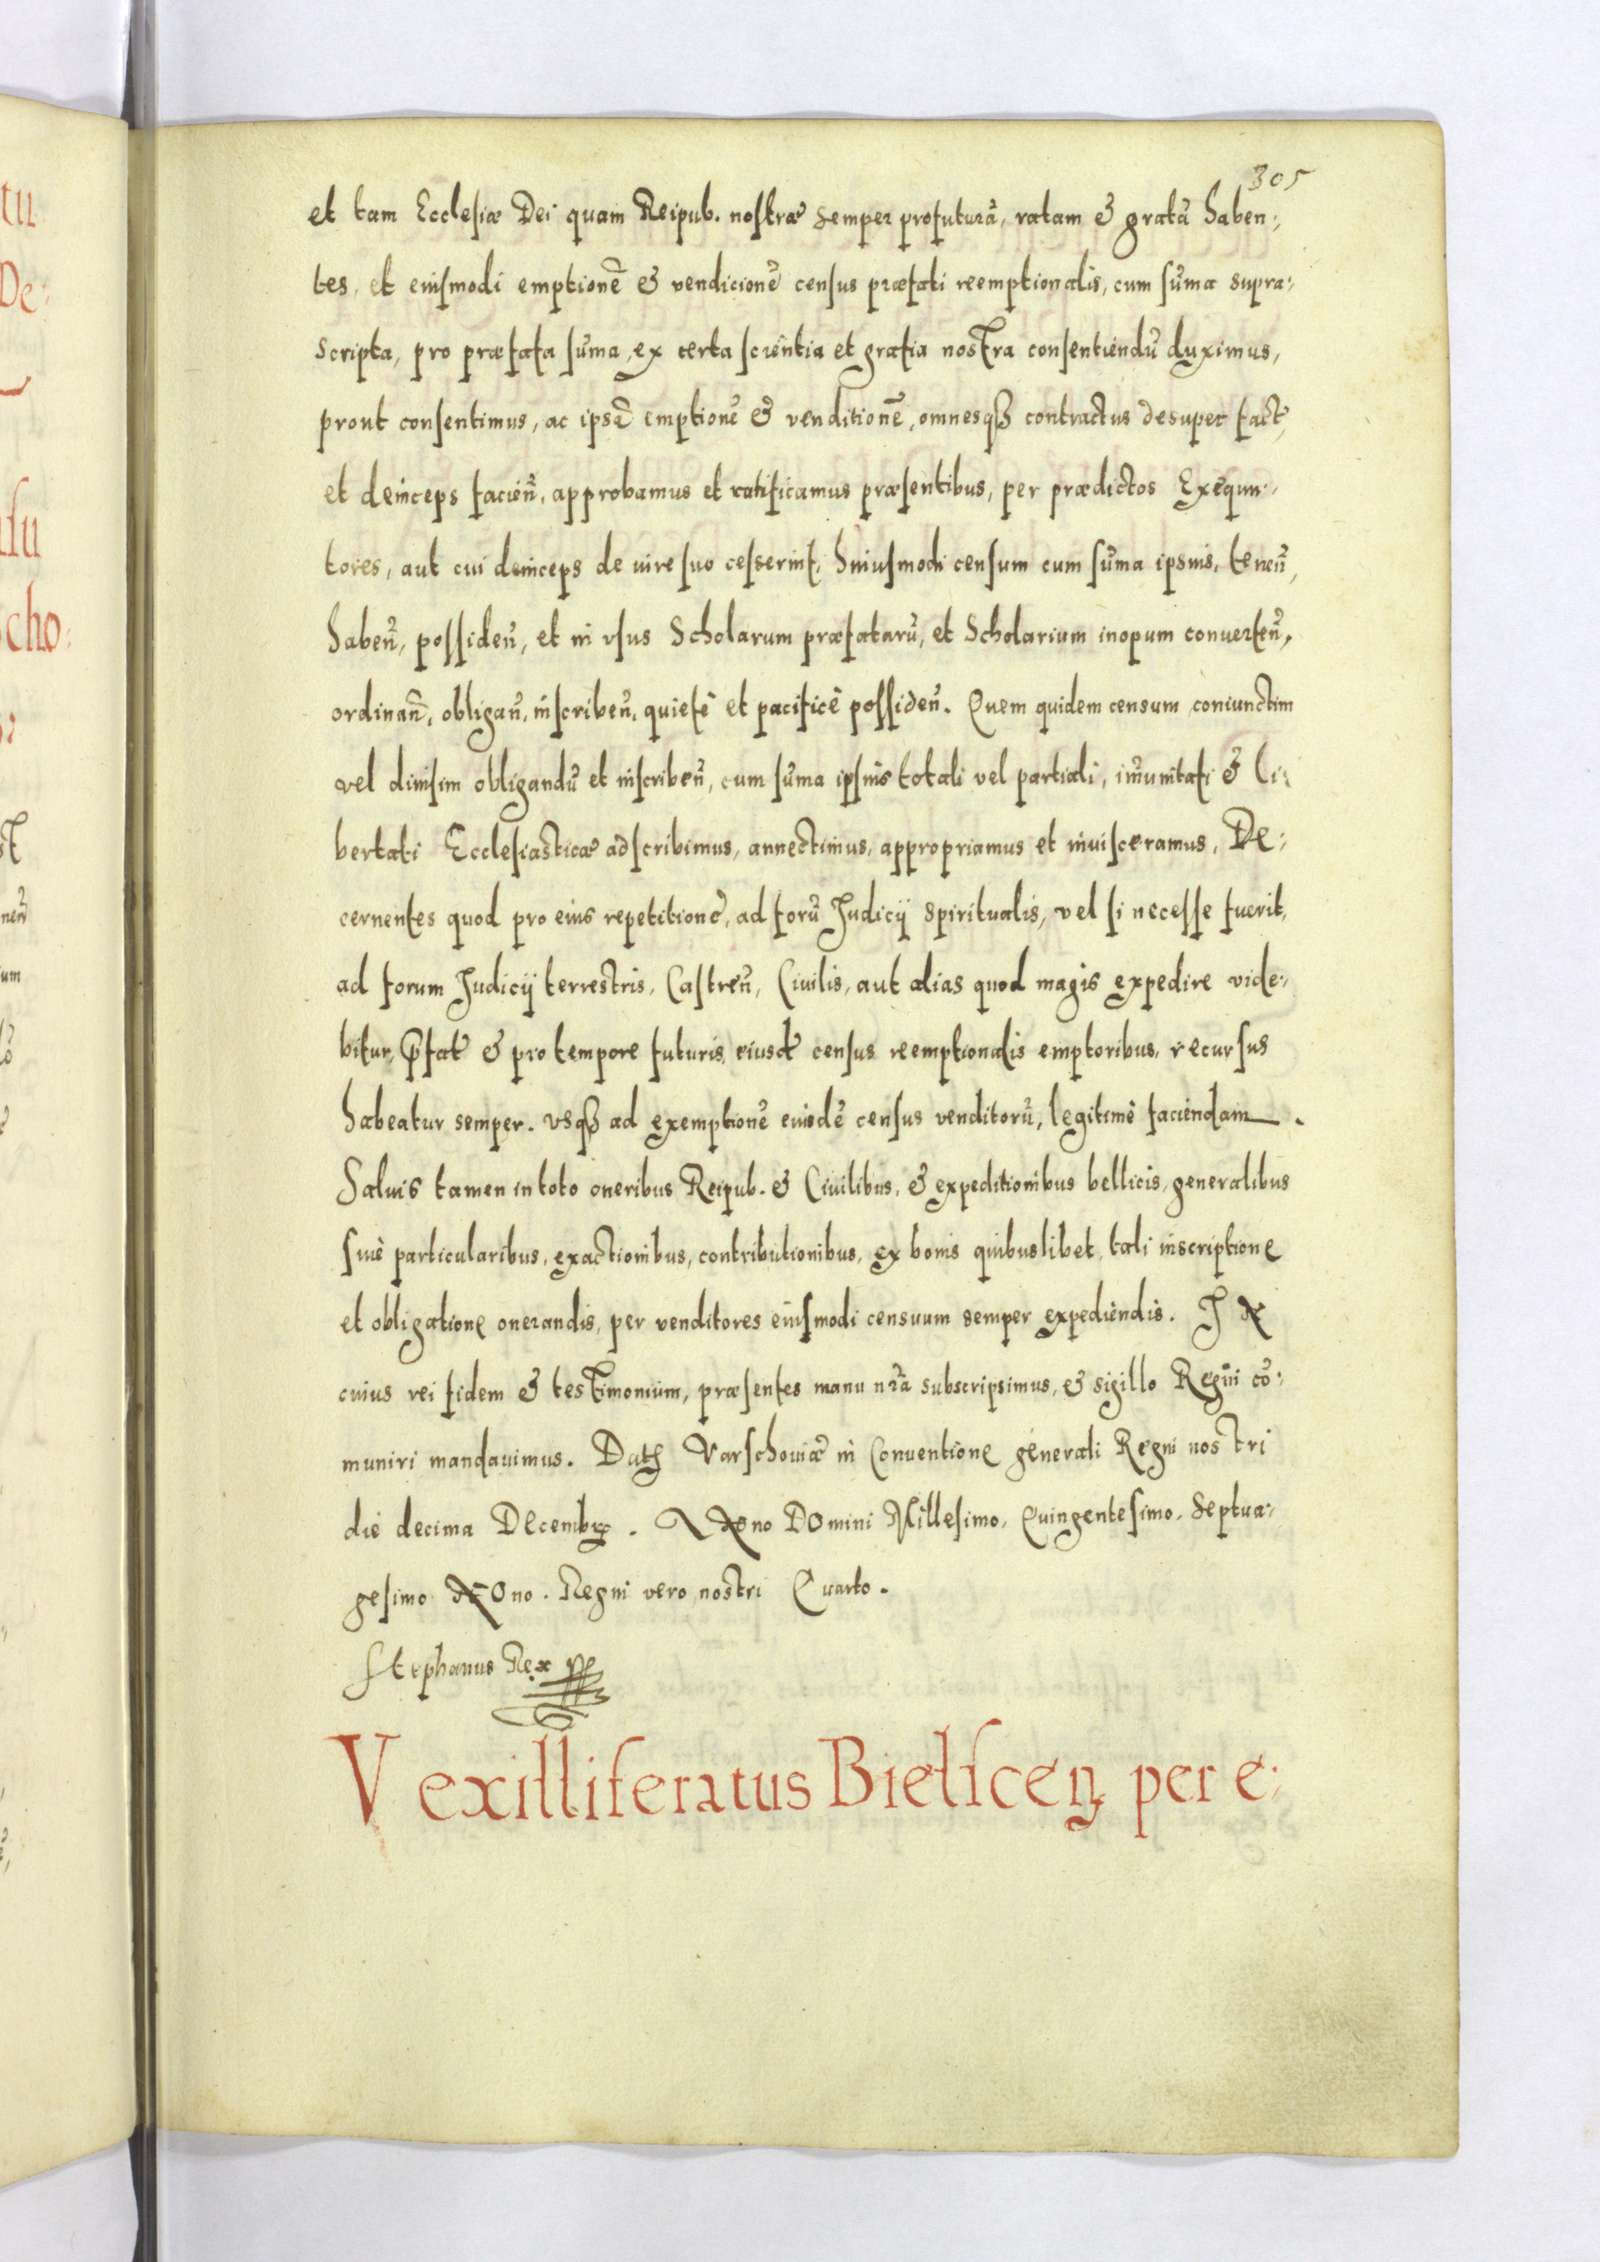 305
et tam Ecclesiæ Dei quam Reipub. nostræ semper profuturā, ratam & gratā haben:
tes, et eiusmodi emptionē & vendicionē census præfati reemptionalis, cum sūma supra:
scripta, pro præfata sūma, ex certa scientia et gratia nostra consentiendū duximus,
prout consentimus, ac ipsā emptionē & venditionē, omnesqȝ contractus desuper fact,
et deinceps facień, approbamus et ratificamus præsentibus, per prædictos Exequu:
tores, aut cui deinceps de iure suo cesserint, huiusmodi censum cum sūma ipsius, teneñ,
habeñ, possideñ, et in vsus Scholarum præfatarū, et Scholarium inopum conuerteñ,
ordinañ, obligañ, inscribeñ, quietè et pacificè possideñ. Quem quidem censum coniunctim
vel diuisim obligandū et inscribeñ, cum sūma ipsius totali vel partiali, im̄unitati & li:
bertati Ecclesiasticæ adscribimus, annectimus, appropriamus et inuisceramus, De:
cernentes quod pro eius repetitione, ad forū Judicij spiritualis, vel si necesse fuerit,
ad forum Judicij terrestris, Castreñ, Ciuilis, aut alias quod magis expedire vide:
bitur, p̄fat & pro tempore futuris, eiusd census reemptionalis emptoribus, recursus
habeatur semper. vsqȝ ad exemptionē eiusdē census venditorū, legitimè faciendam.
Saluis tamen in toto oneribus Reipub. & Ciuilibus, & expeditionibus bellicis, generalibus
siuè particularibus, exactionibus, contributionibus, ex bonis quibuslibet, tali inscriptione
et obligatione onerandis, per venditores eiusmodi censuum semper expediendis. IN
cuius rei fidem & testimonium, præsentes manu nrā subscripsimus, & sigillo Regni cō:
muniri mandauimus. Datȝ Varschouiæ in Conuentione generali Regni nostri
die decima Decembȝ. ANno DOmini Millesimo, Quingentesimo, Septua:
gesimo NOno. Regni vero nostri Quarto.
Stephanus Rex
Vexilliferatus Bielscen per e: